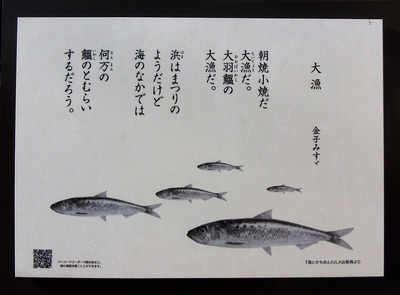 大漁
金子みすゞ
朝焼小焼だ
大漁だ。
大羽鰮の
大漁だ。
浜はまつりの
ようだけど
海のなかでは
何万の
鰮のとむらい
するだろう。
『海とかもめ』JULA出版局より